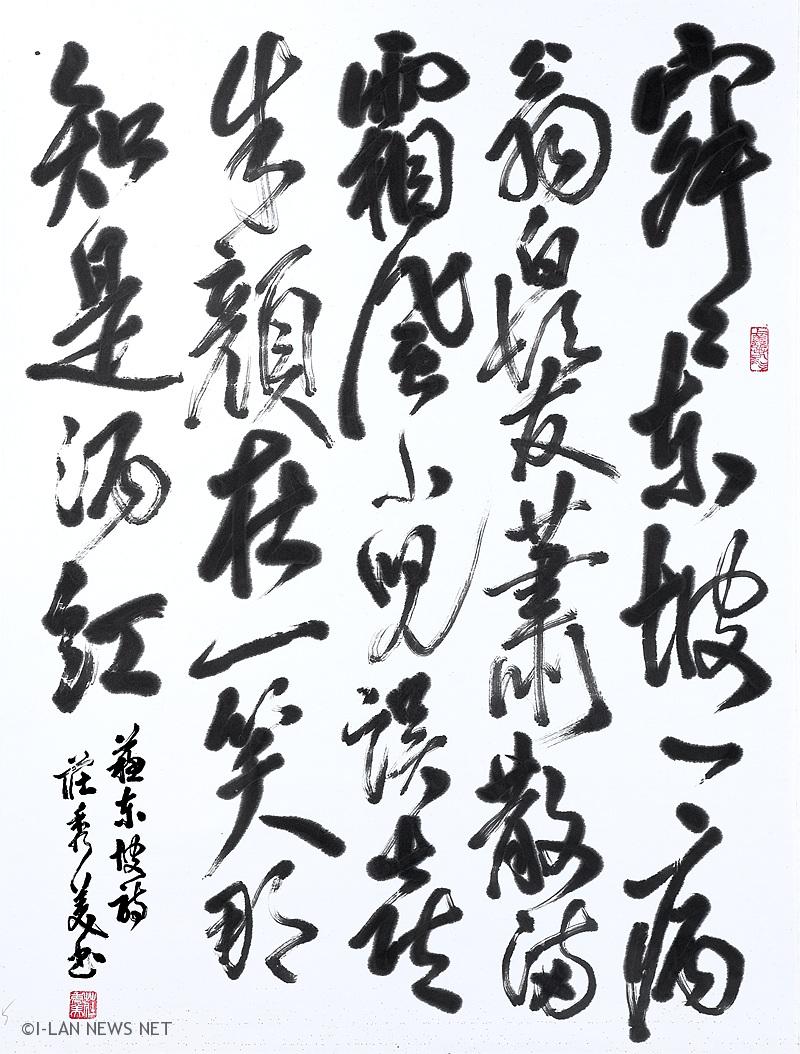 寂々東坡一病
翁白髮蕭散滿
霜風小兒誤喜
朱顏在一笑那
知是酒紅
蘇東坡詩
莊秀美書
©I-LAN NEWS NET